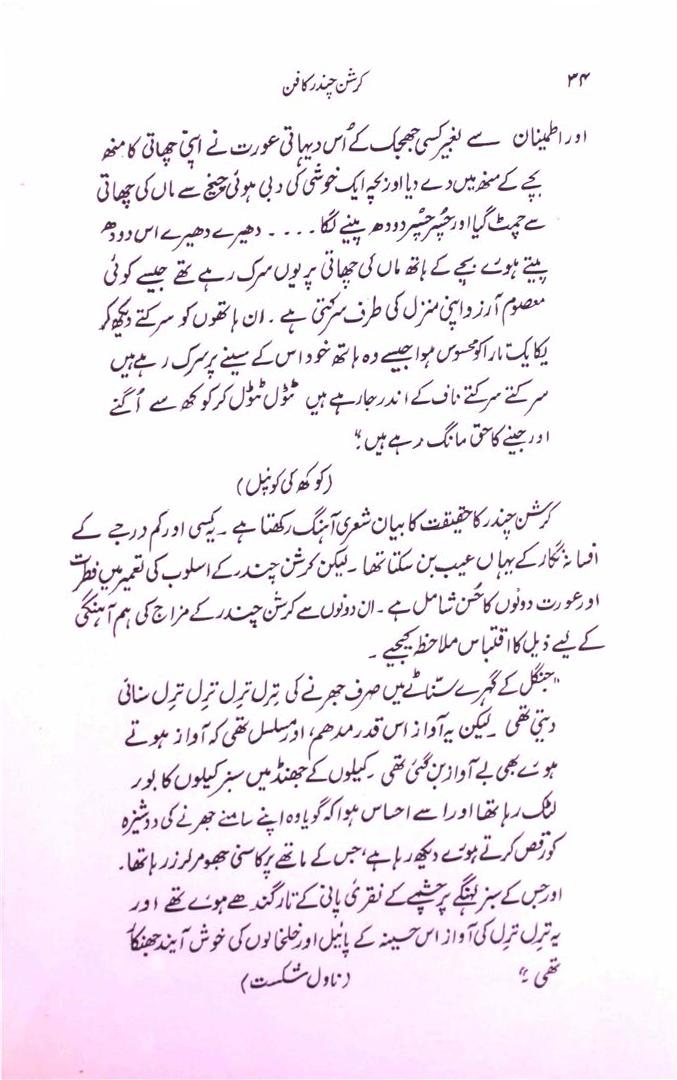 ۳۴
کرشن چندر کا فن
اور اطمینان سے بغیر کسی جھجک کے اُس دیہاتی عورت نے اپنی چھاتی کا منھ
بچے کے منھ میں دے دیا اور بچہ ایک خوشی کی دبی ہوئی چیخ سے ماں کی چھاتی
سے چمٹ گیا اور چُسر چُسر دودھ پینے لگا .... دھیرے دھیرے اس دودھ
پیتے ہوے بچے کے ہاتھ ماں کی چھاتی پر یوں سرک رہے تھے جیسے کوئی
معصوم آرزو اپنی منزل کی طرف سرکتی ہے ۔ ان ہاتھوں کو سرکتے دیکھ کر
یکایک تارا کو محسوس ہوا جیسے وہ ہاتھ خود اس کے سینے پر سرک رہے ہیں
سرکتے سرکتے ناف کے اندر جا رہے ہیں ٹٹول ٹٹول کر کوکھ سے اُگنے
اور جینے کا حق مانگ رہے ہیں ۔"
(کوکھ کی کونپل)
کرشن چندر کا حقیقت کا بیان شعری آہنگ رکھتا ہے ۔ یہ کسی اور کم درجے کے
افسانہ نگار کے یہاں عیب بن سکتا تھا ۔ لیکن کرشن چندر کے اسلوب کی تعمیر میں فطرت
اور عورت دونوں کا حُسن شامل ہے ۔ ان دونوں سے کرشن چندر کے مزاج کی ہم آہنگی
کے لیے ذیل کا اقتباس ملاحظہ کیجیے ۔
"جنگل کے گہرے سنّاٹے میں صرف جھرنے کی تِرل تِرل تِرل تِرل سنائی
دیتی تھی ۔ لیکن یہ آواز اس قدر مدھم، اور مسلسل تھی کہ آواز ہوتے
ہوے بھی بے آواز بن گئی تھی ۔ کیلوں کے جھنڈ میں سبز کیلوں کا بور
لٹک رہا تھا اور اسے احساس ہوا کہ گویا وہ اپنے سامنے جھرنے کی دوشیزہ
کو رقص کرتے ہوے دیکھ رہا ہے، جس کے ماتھے پر کاسنی جھومر لرز رہا تھا ۔
اور جس کے سبز لہنگے پر چشمے کے نقرئی پانی کے تار گندھے ہوے تھے اور
یہ تِرل تِرل کی آواز اس حسینہ کے پائیل اور خلخالوں کی خوش آیند جھنکار
تھی ۔" (ناول شکست)